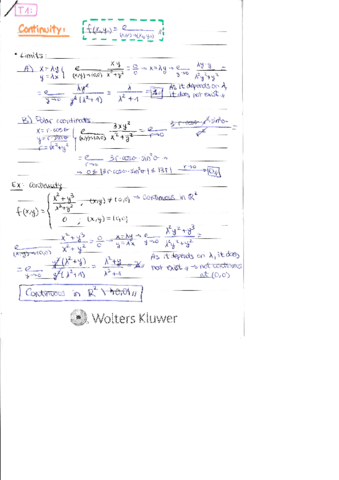 T1:
Continuity: f(x₀,y₀) = ℓ (x,y)→(x₀,y₀)
• Limits:
A) x=λy; y=λx } ℓ (x,y)→(0,0) xy/(x²+y²) = 0/0 → x=λy → ℓ y→0 λy·y/(λ²y²+y²)
= ℓ y→0 λy²/(y²(λ²+1)) = λ/(λ²+1) As it depends on λ, it does not exist
B) Polar coordinates
x=r·cosθ
y=r·sinθ
r²=x²+y²
ℓ (x,y)→(0,0) 3xy²/(x²+y²) = ℓ r→0
= ℓ r→0 3r·cosθ·sin²θ =
Ex: Continuity
f(x,y) = { (x²+y³)/(x²+y²), (x,y)≠(0,0) → Continuous in ℝ²
0, (x,y)=(0,0)
ℓ (x,y)→(0,0) (x²+y³)/(x²+y²) = 0/0 → x=λy → ℓ y→0 (λ²y²+y³)/(λ²y²+y²) =
= ℓ y→0 y²(λ²+y)/(y²(λ²+1)) = (λ²+y)/(λ²+1) = As it depends on λ, it does not exist → not continuous at (0,0)
Continuous in ℝ² \ (0,0)
Wolters Kluwer